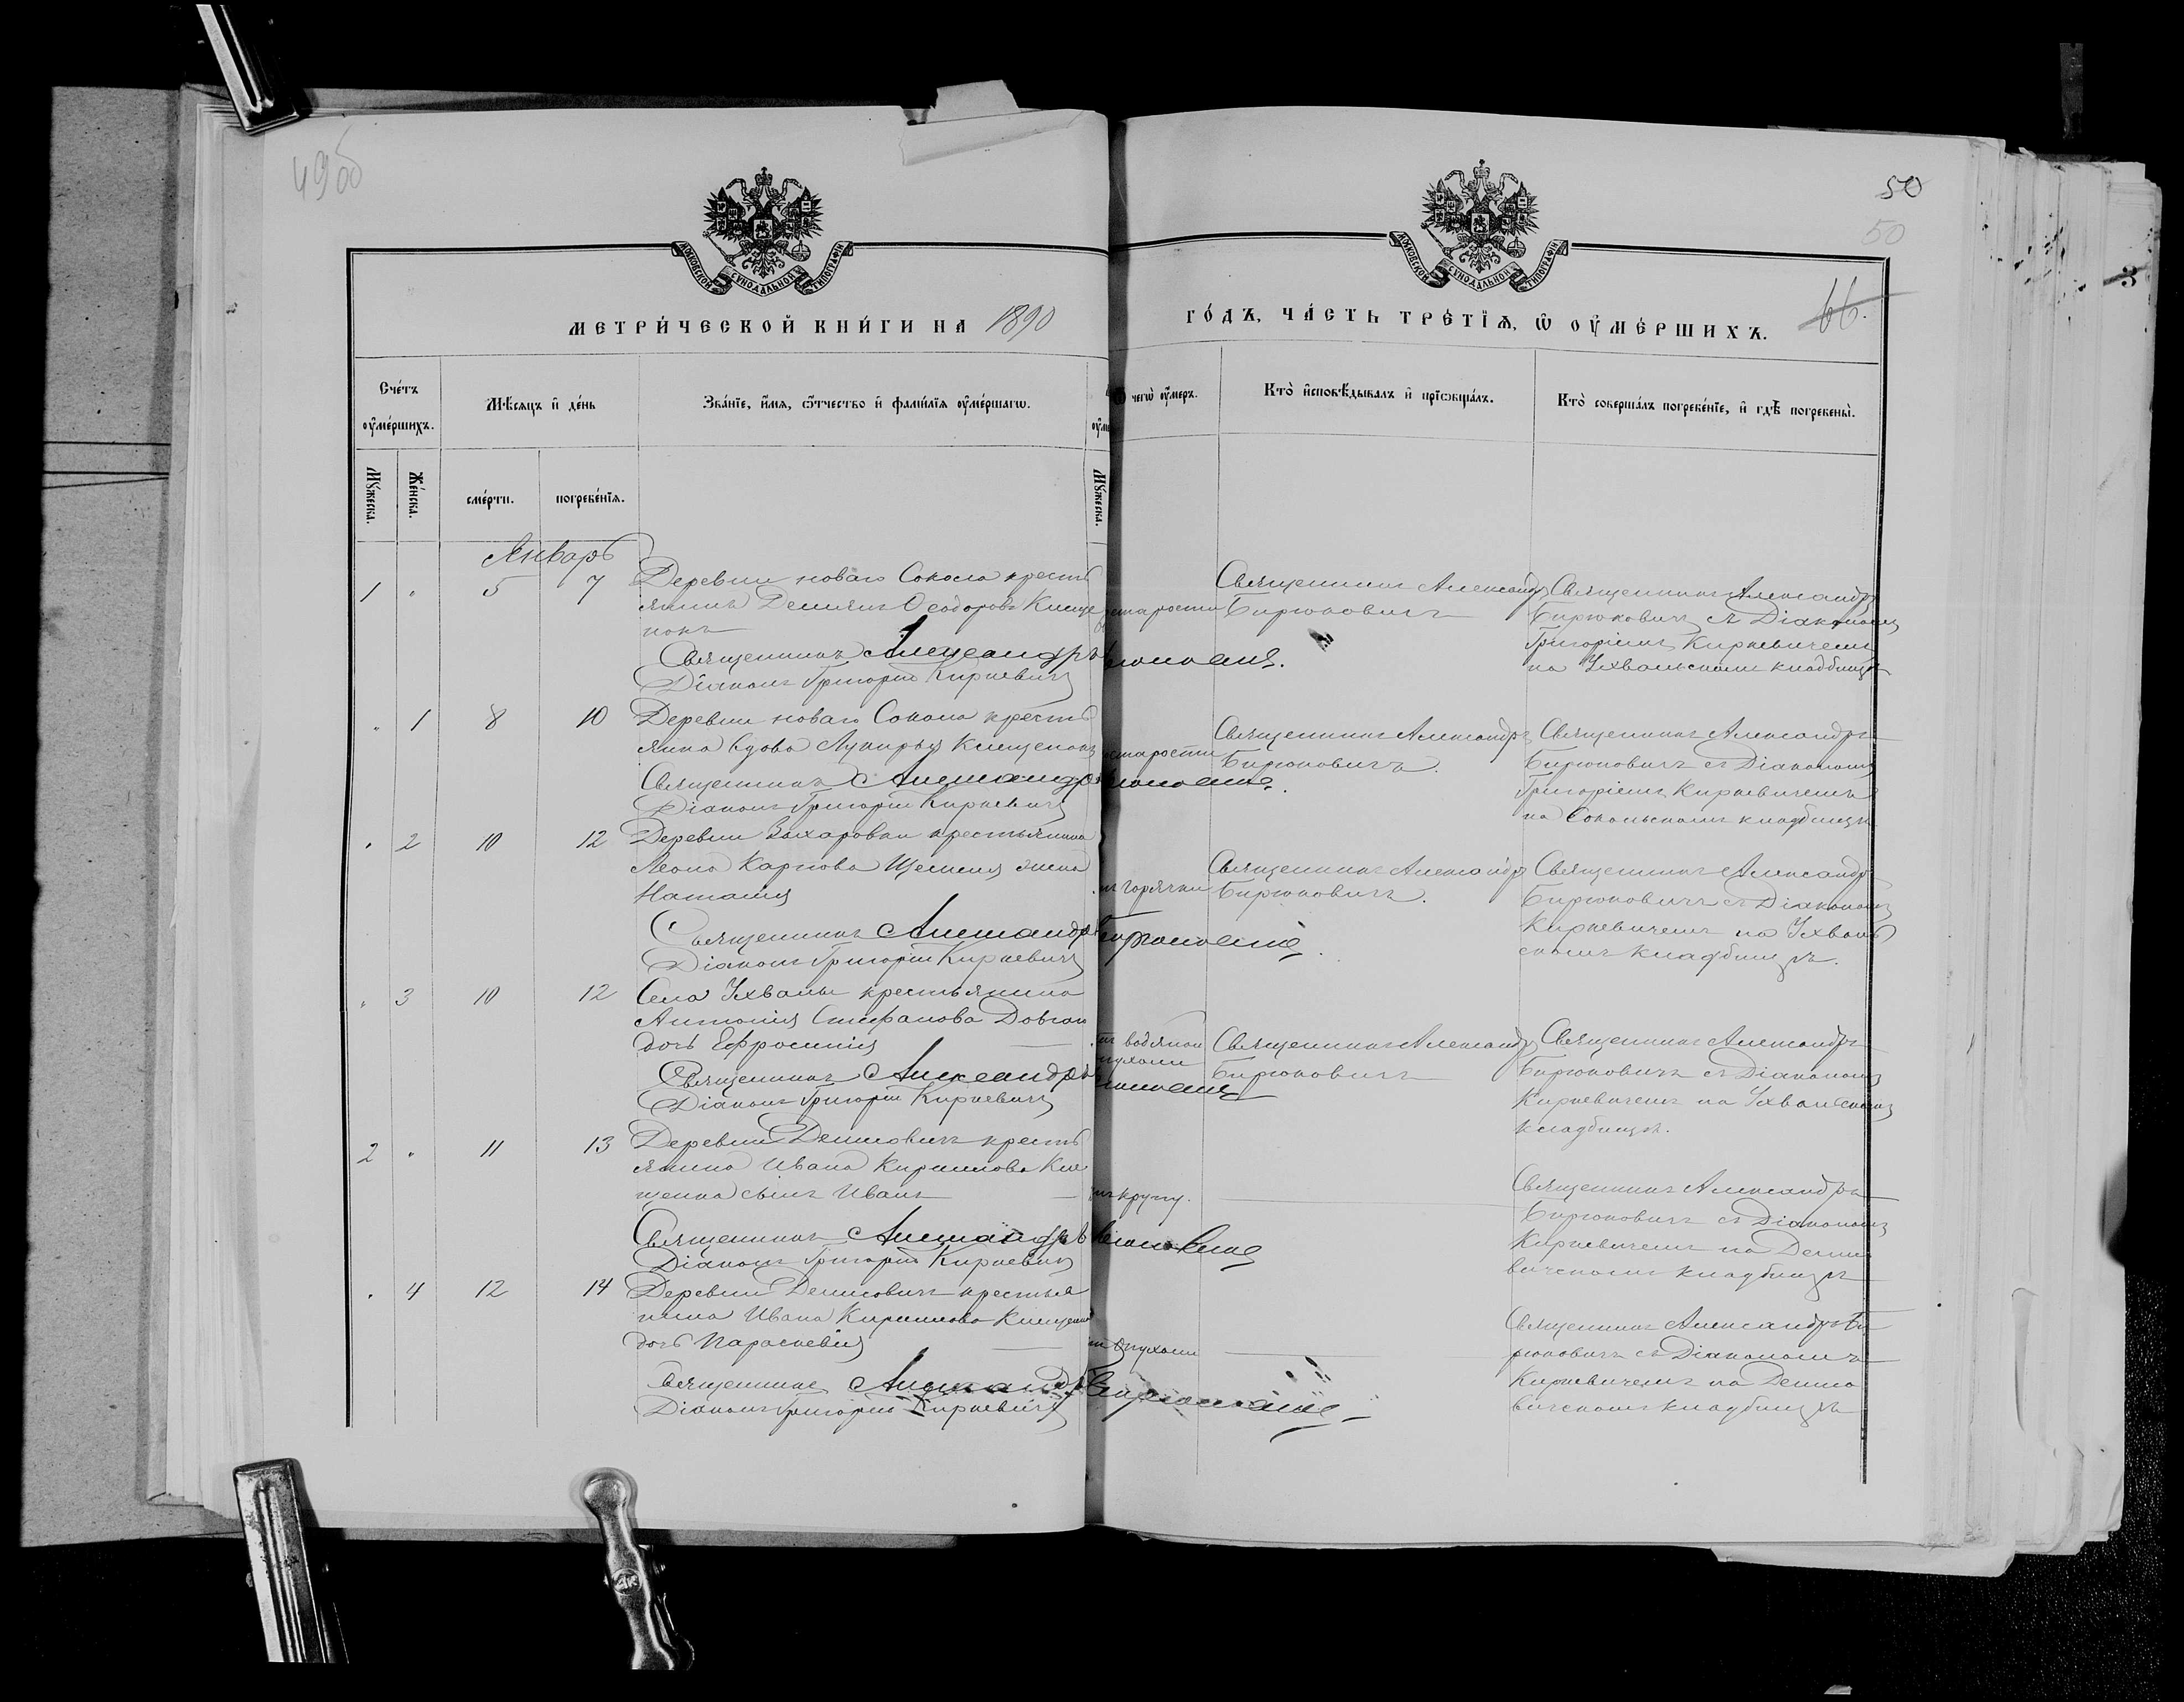 49об
50
50
66.
МОСКОВСКОЙ СѴНОДАЛЬНОЙ ТИПОГРАФІИ
МОСКОВСКОЙ СѴНОДАЛЬНОЙ ТИПОГРАФІИ
МЕТРИ́ЧЕСКОЙ КНИ́ГИ НА 1890
ГО́ДЪ, ЧА́СТЬ ТРЕ́ТІѦ, Ѡ ОУ҆МЕ́РШИХЪ.
Сче́тъ оу҆ме́ршихъ.
Мѣ́сяцъ и҆ де́нь
Зва́нїе, и҆́мя, ѻ҆́тчество и҆ фами́лїя оу҆ме́ршагѡ.
чегѡ̀ оу҆́меръ.
Кто̀ и҆сповѣ́дывалъ и҆ прїѡбща́лъ.
Кто̀ соверша́лъ погребе́нїе, и҆ гдѣ̀ погребены̀.
Мꙋ́жеска.
Же́нска.
сме́рти.
погребе́нїя.
Мꙋ́жеска.
Январь
1 " 5 7
Деревни новаго Сокола кресть
янинъ Демьянъ Ѳеодоровъ Клище
нокъ
Священникъ Александръ
Діаконъ Григорій Киркевичъ
старости
Священникъ Александръ
Бирюковичъ
Священникъ Александръ
Бирюковичъ съ Діакономъ
Григоріемъ Киркевичемъ
на Ухвальскомъ кладбищѣ
" 1 8 10
Деревни новаго Сокола кресть
янка вдова Лукирья Клищенокъ
Священникъ Александръ
Діаконъ Григорій Киркевичъ
старости
Священникъ Александръ
Бирюковичъ.
Священникъ Александръ
Бирюковичъ съ Діакономъ
Григоріемъ Киркевичемъ
на Сокольскомъ кладбищѣ
" 2 10 12
Деревни крестьянина
Леона Карпова жена
Наталія
Священникъ Александръ Бирюковичъ.
Діаконъ Григорій Киркевичъ
горячки
Священникъ Александръ
Бирюковичъ.
Священникъ Александръ
Бирюковичъ съ Діакономъ
Киркевичемъ на Ухваль
скомъ кладбищѣ.
" 3 10 12
Села Ухвалы крестьянина
Антонія Стефанова
дочь Ефросинія
Священникъ Александръ
Діаконъ Григорій Киркевичъ
водяной
пухоли
Священникъ Александръ
Бирюковичъ
Священникъ Александръ
Бирюковичъ съ Діакономъ
Киркевичемъ на Ухвальскомъ
кладбищѣ.
2 " 11 13
Деревни Денисовичъ кресть
янина Ивана Кириллова Кли
щенка сынъ Иванъ
Священникъ Александръ
Діаконъ Григорій Киркевичъ
крупу.
Священникъ Александръ
Бирюковичъ съ Діакономъ
Киркевичемъ на Дени
вичскомъ кладбищѣ
" 4 12 14
Деревни Денисовичъ крестья
нина Ивана Кириллова
дочь Параскевія
Священникъ Александръ Бирюковичъ
Діаконъ Григорій Киркевичъ
опухоли
Священникъ Александръ Би
рюковичъ съ Діакономъ
Киркевичемъ на Денисо
вичскомъ кладбищѣ